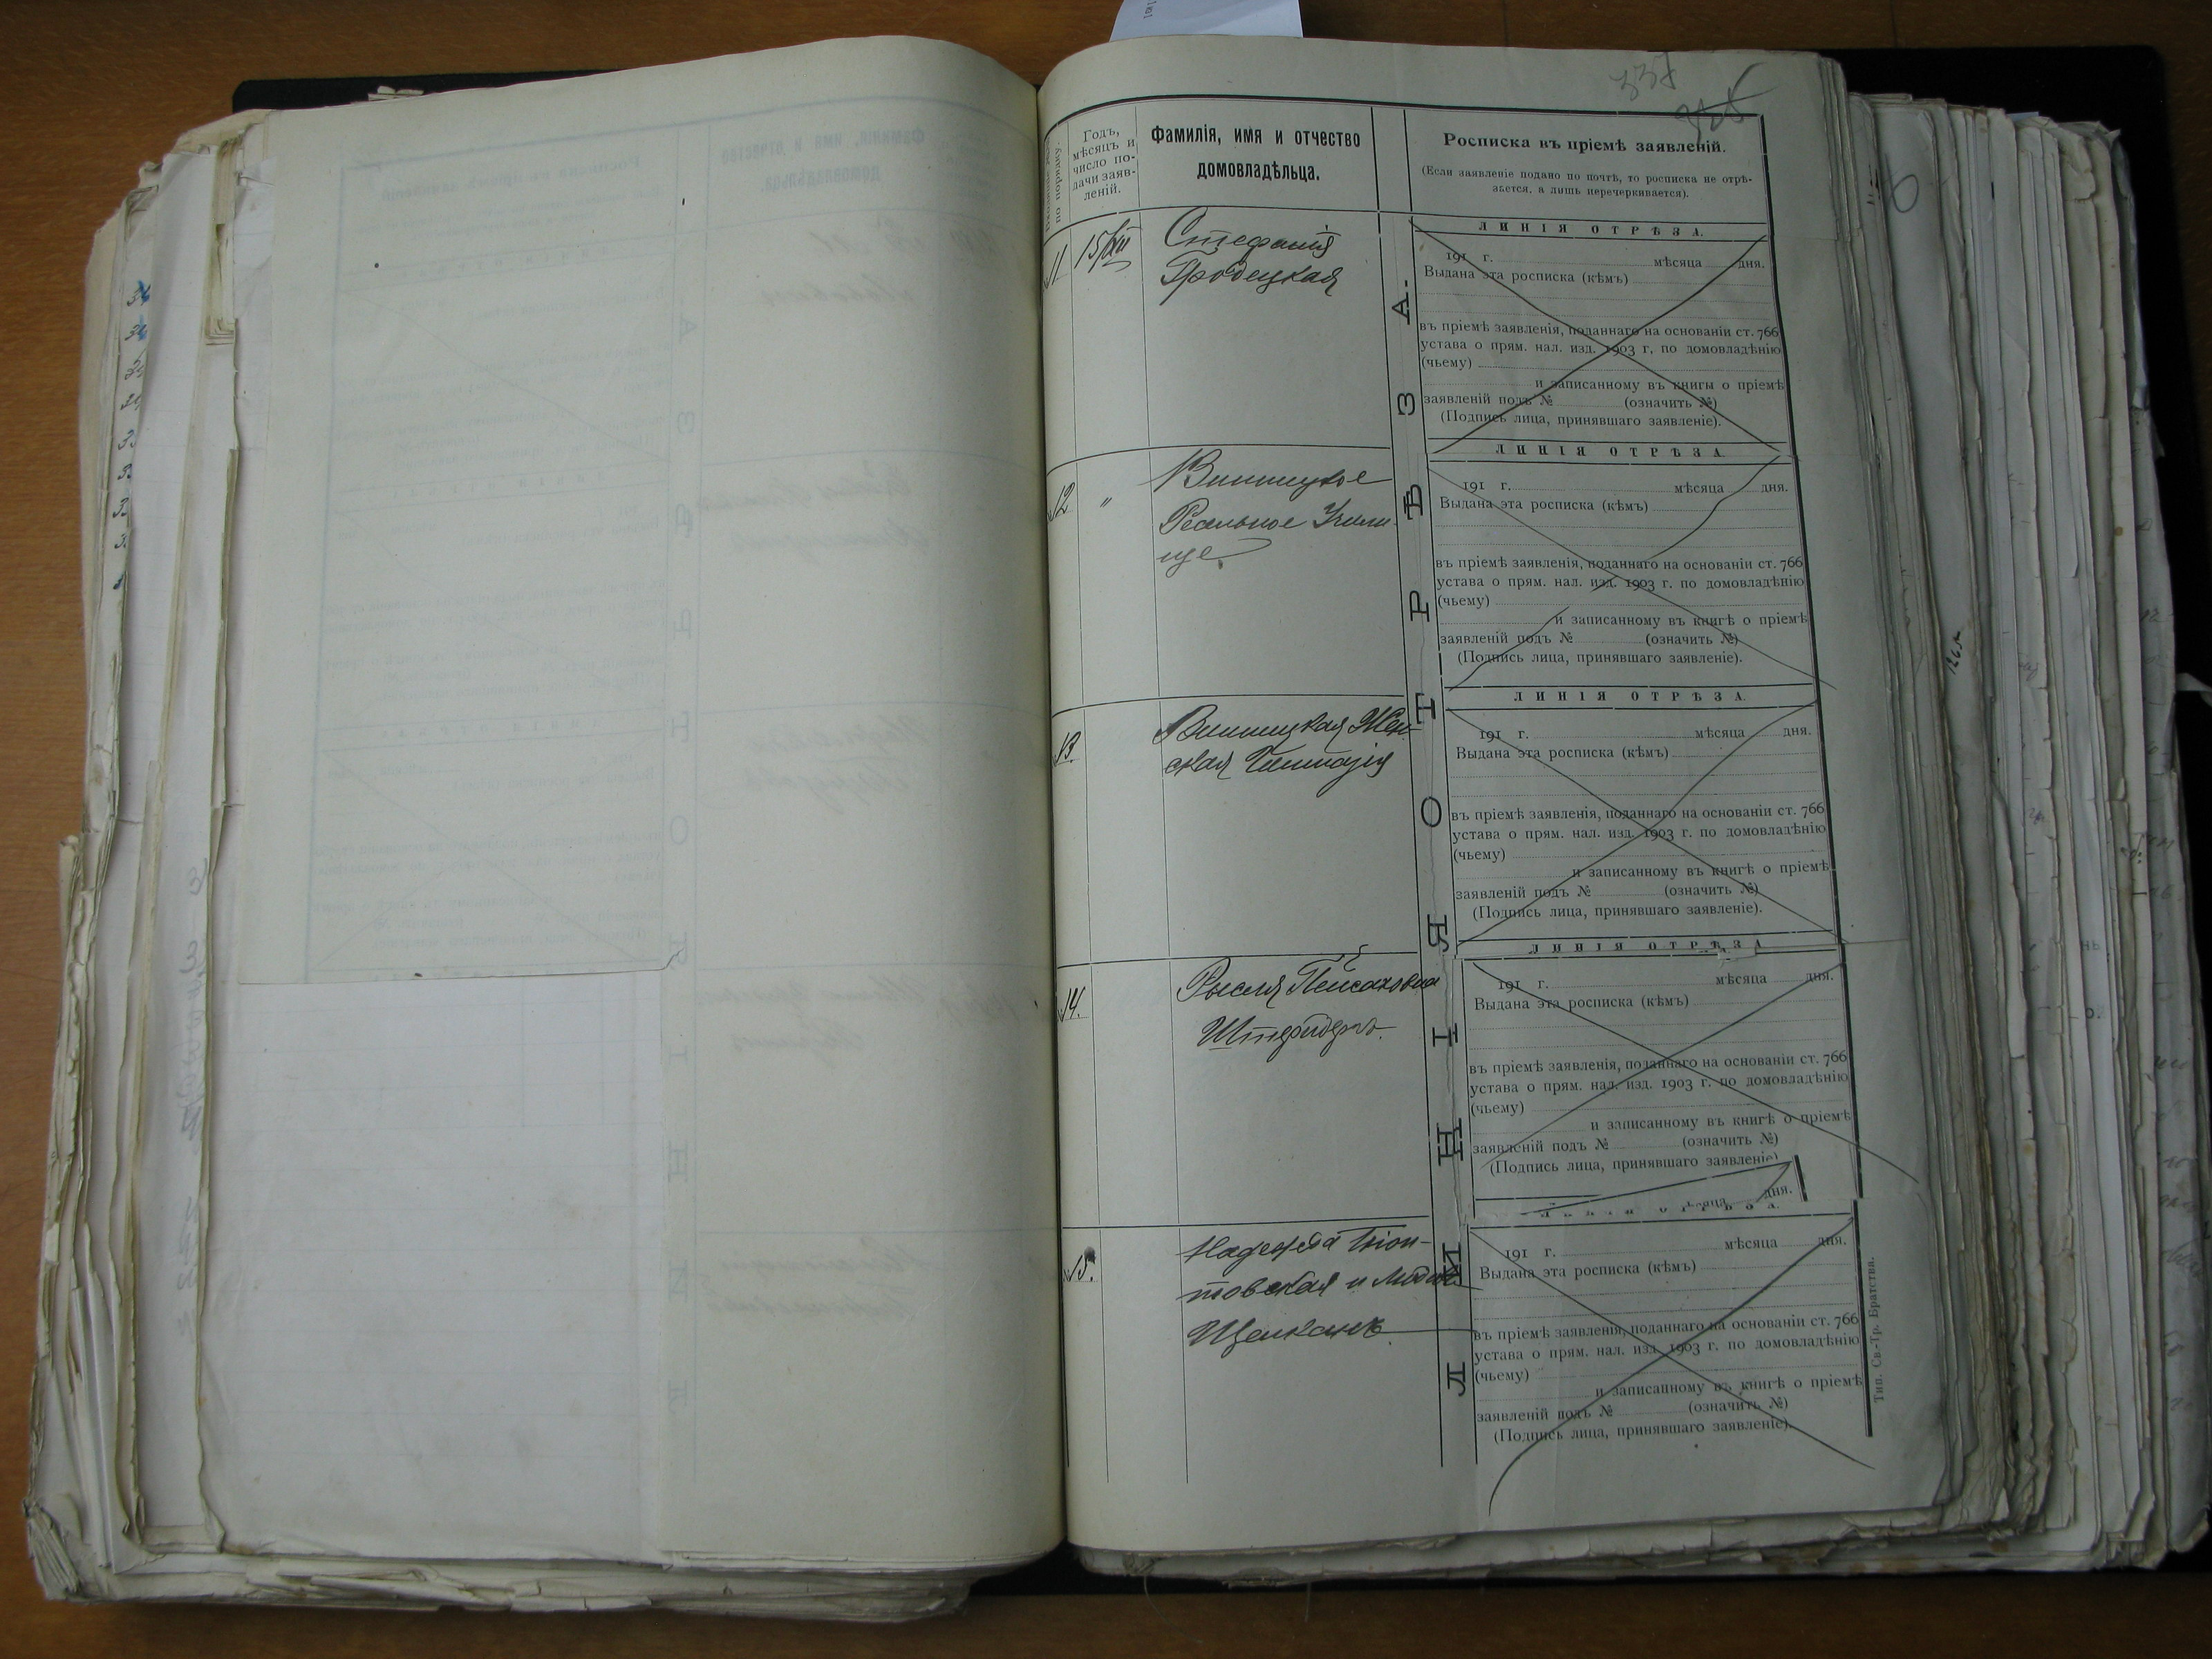 337
325
по порядку.
Годъ,
мѣсяцъ и
число по-
дачи заяв-
леній.
Фамилія, имя и отчество
домовладѣльца.
Росписка въ пріемѣ заявленій.
(Если заявленіе подано по почтѣ, то росписка не отрѣ-
зается, а лишь перечеркивается).
ЛИНІЯ ОТРѢЗА.
11.
15/XII
Стефанія
Гродецкая
ЛИНІЯ ОТРѢЗА
191 г. мѣсяца дня.
Выдана эта росписка (кѣмъ)
въ пріемѣ заявленія, поданнаго на основаніи ст. 766
устава о прям. нал. изд. 1903 г, по домовладѣнію
(чьему)
и записанному въ книгы о пріемѣ
заявленій подъ № (означить №)
(Подпись лица, принявшаго заявленіе).
12
"
Винницкое
Реальное Учили-
ще.
ЛИНІЯ ОТРѢЗА
191 г. мѣсяца дня.
Выдана эта росписка (кѣмъ)
въ пріемѣ заявленія, поданнаго на основаніи ст. 766
устава о прям. нал. изд. 1903 г. по домовладѣнію
(чьему)
и записанному въ книгѣ о пріемѣ
заявленій подъ № (означить №)
(Подпись лица, принявшаго заявленіе).
13.
Винницкая Жен-
ская Гимназія
ЛИНІЯ ОТРѢЗА.
191 г. мѣсяца дня.
Выдана эта росписка (кѣмъ)
въ пріемѣ заявленія, поданнаго на основаніи ст. 766
устава о прям. нал. изд. 1903 г. по домовладѣнію
(чьему)
и записанному въ книгѣ о пріемѣ
заявленій подъ № (означить №)
(Подпись лица, принявшаго заявленіе).
14.
Рысля Пейсаховна
ЛИНІЯ ОТРѢЗА
191 г. мѣсяца дня.
Выдана эта росписка (кѣмъ)
въ пріемѣ заявленія, поданнаго на основаніи ст. 766
устава о прям. нал. изд. 1903 г. по домовладѣнію
(чьему)
и записанному въ книгѣ о пріемѣ
заявленій подъ № (означить №)
(Подпись лица, принявшаго заявленіе)
дня.
15.
Надежда
и
191 г. мѣсяца дня.
Выдана эта росписка (кѣмъ)
въ пріемѣ заявленія, поданнаго на основаніи ст. 766
устава о прям. нал. изд. 1903 г. по домовладѣнію
(чьему)
и записанному въ книгѣ о пріемѣ
заявленій подъ № (означить №)
(Подпись лица, принявшаго заявленіе).
Тип. Св.-Тр. Братства.